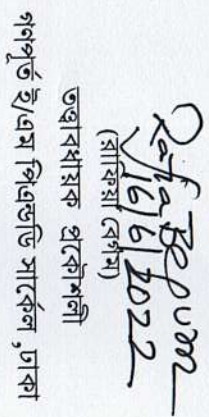 Rafia Begum
16/6/2022
(রাফিয়া বেগম)
তত্ত্বাবধায়ক প্রকৌশলী
গণপূর্ত ই/এম পিএন্ডডি সার্কেল, ঢাকা